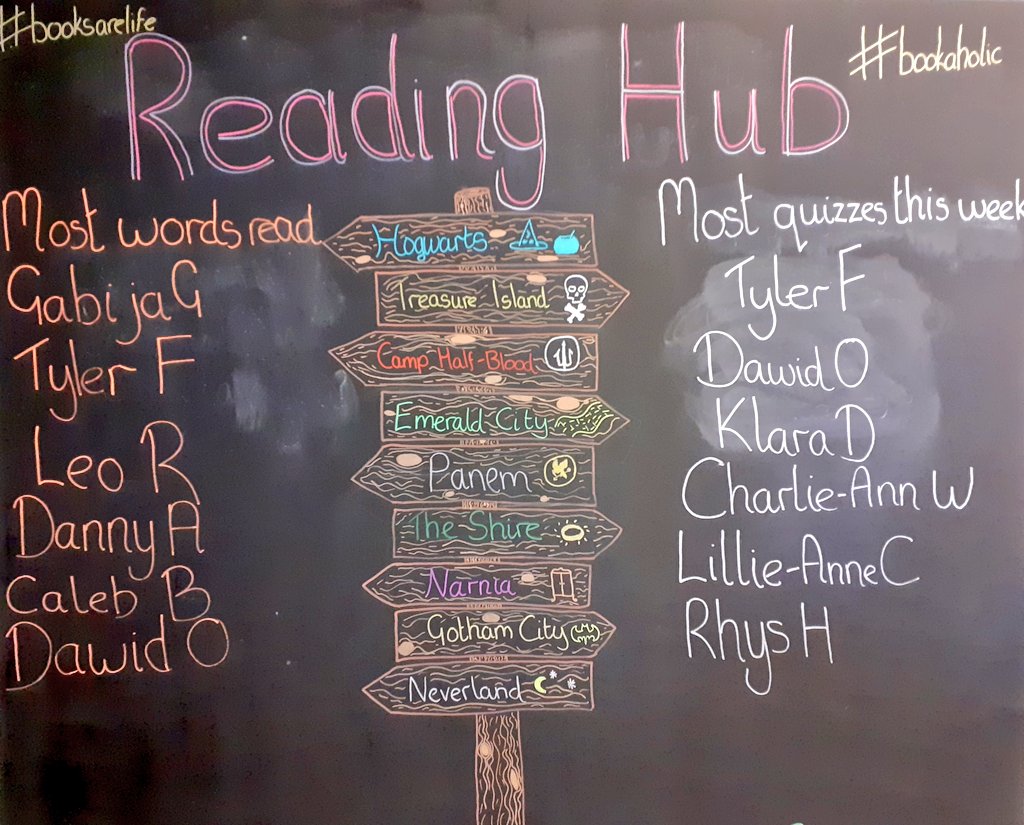 #booksarelife
#bookaholic
Reading Hub
Most words read
Gabija G
Tyler F
Leo R
Danny A
Caleb B
Dawid O
Hogwarts
Treasure Island
Camp Half-Blood
Emerald City
Panem
The Shire
Narnia
Gotham City
Neverland
Most quizzes this week
Tyler F
Dawid O
Klara D
Charlie-Ann W
Lillie-Anne C
Rhys H